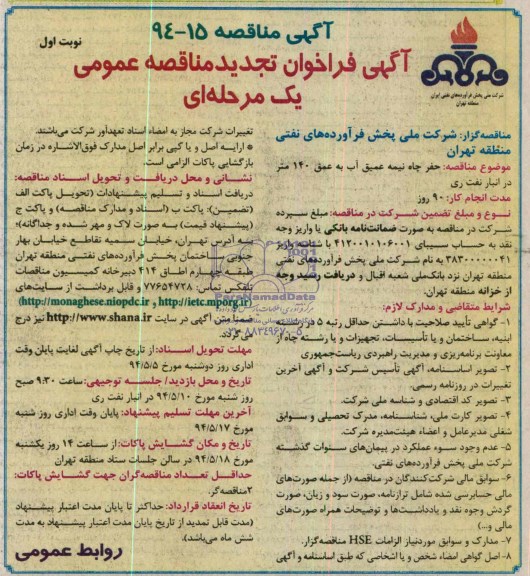 آگهی مناقصه ۱۵-۹۴
نوبت اول
آگهی فراخوان تجدیدمناقصه عمومی
یک مرحله‌ای
شرکت ملی پخش فرآورده‌های نفتی ایران
منطقه تهران
مناقصه‌گزار: شرکت ملی پخش فرآورده‌های نفتی
منطقه تهران
موضوع مناقصه: حفر چاه نیمه عمیق آب به عمق ۱۴۰ متر
در انبار نفت ری
مدت انجام کار: ۹۰ روز
نوع و مبلغ تضمین شرکت در مناقصه: مبلغ سپرده
شرکت در مناقصه به صورت ضمانت‌نامه بانکی یا واریز وجه
نقد به حساب سیبای ۴۱۲۰۰۱۰۱۰۶۰۰۱ با شناسه واریز
به نام شرکت ملی پخش فرآورده‌های نفتی
منطقه تهران نزد بانک‌ملی شعبه اقبال و دریافت رسید وجه
از خزانه منطقه تهران.
شرایط متقاضی و مدارک لازم:
۱- گواهی تأیید صلاحیت با داشتن حداقل رتبه ۵ در رشته
ابنیه، ساختمان و یا تأسیسات، تجهیزات و یا رشته چاه از
معاونت برنامه‌ریزی و مدیریت راهبردی ریاست‌جمهوری
۲- تصویر اساسنامه، آگهی تأسیس شرکت و آگهی آخرین
تغییرات در روزنامه رسمی.
۳- تصویر کد اقتصادی و شناسه ملی شرکت.
۴- تصویر کارت ملی، شناسنامه، مدرک تحصیلی و سوابق
شغلی مدیرعامل و اعضاء هیئت‌مدیره شرکت.
۵- عدم وجود سوء عملکرد در پیمان‌های سنوات گذشته
شرکت ملی پخش فرآورده‌های نفتی.
۶- سوابق مالی شرکت‌کنندگان در مناقصه (از جمله صورت‌های
مالی حسابرسی شده شامل ترازنامه، صورت سود و زیان، صورت
گردش وجوه نقد و یادداشت‌ها و توضیحات همراه صورت‌های
مالی و...)
۷- مدارک و سوابق موردنیاز الزامات HSE مناقصه‌گزار.
۸- اصل گواهی امضاء شخص و یا اشخاصی که طبق اساسنامه و آگهی
تغییرات شرکت مجاز به امضاء اسناد تعهدآور شرکت می‌باشند.
* ارایه اصل و یا کپی برابر اصل مدارک فوق‌الاشاره در زمان
بازگشایی پاکات الزامی است.
نشانی و محل دریافت و تحویل اسناد مناقصه:
دریافت اسناد و تسلیم پیشنهادات (تحویل پاکت الف
(تضمین)؛ پاکت ب (اسناد و مدارک مناقصه) و پاکت ج
(پیشنهاد قیمت) به صورت لاک و مهر شده و جداگانه)؛
به آدرس تهران، خیابان سمیه تقاطع خیابان بهار
جنوبی ساختمان پخش فرآورده‌های نفتی منطقه تهران
طبقه چهارم اطاق ۴۱۴ دبیرخانه کمیسیون مناقصات
تلفکس تماس: ۷۷۶۵۴۷۲۸ و قابل برداشت از سایت‌های
(http://monaghese.niopdc.ir و http://ietc.mporg.ir)
ضمناً متن آگهی در سایت http://www.shana.ir نیز درج
می‌گردد.
مهلت تحویل اسناد: از تاریخ چاپ آگهی لغایت پایان وقت
اداری روز دوشنبه مورخ ۹۴/۵/۵
تاریخ و محل بازدید/ جلسه توجیهی: ساعت ۹:۳۰ صبح
روز شنبه مورخ ۹۴/۵/۱۰ در انبار نفت ری
آخرین مهلت تسلیم پیشنهاد: پایان وقت اداری روز شنبه
مورخ ۹۴/۵/۱۷
تاریخ و مکان گشایش پاکات: از ساعت ۱۴ روز یکشنبه
مورخ ۹۴/۵/۱۸ در سالن جلسات ستاد منطقه تهران
حداقل تعداد مناقصه‌گران جهت گشایش پاکات:
۲مناقصه‌گر.
تاریخ انعقاد قرارداد: حداکثر تا پایان مدت اعتبار پیشنهاد
(مدت قابل تمدید از تاریخ پایان مدت اعتبار پیشنهاد به مدت
شش ماه می‌باشد).
روابط عمومی
ParsNamadData